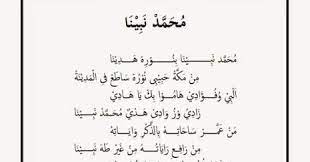 مُحَمَّدْ نَبِيْنَا
مُحَمَّد نَبِـيْـنَا بِنُـوْرِهِ هَدِيْنَا
مِنْ مَكَّةْ حَبِيْبِي نُوْرُهُ سَاطَعْ فِى الْمَدِيْنَةْ
اَلْبِي وَفُـؤَادِي هَامُـوْا بِكَ يَا هَادِيْ
زَادِيْ وَزْ وَادِيْ هَدْيُ مُحَمَّدْ نَبِيـنَا
مَنْ عَمَّـرْ سَاحَاتِـهُ بِالذِّكْرْ وَايَاتِـهْ
مِنْ رَافِعْ رَايَاتُـهُ مِنْ غَيْرْ طَهَ نَبِيـنَا